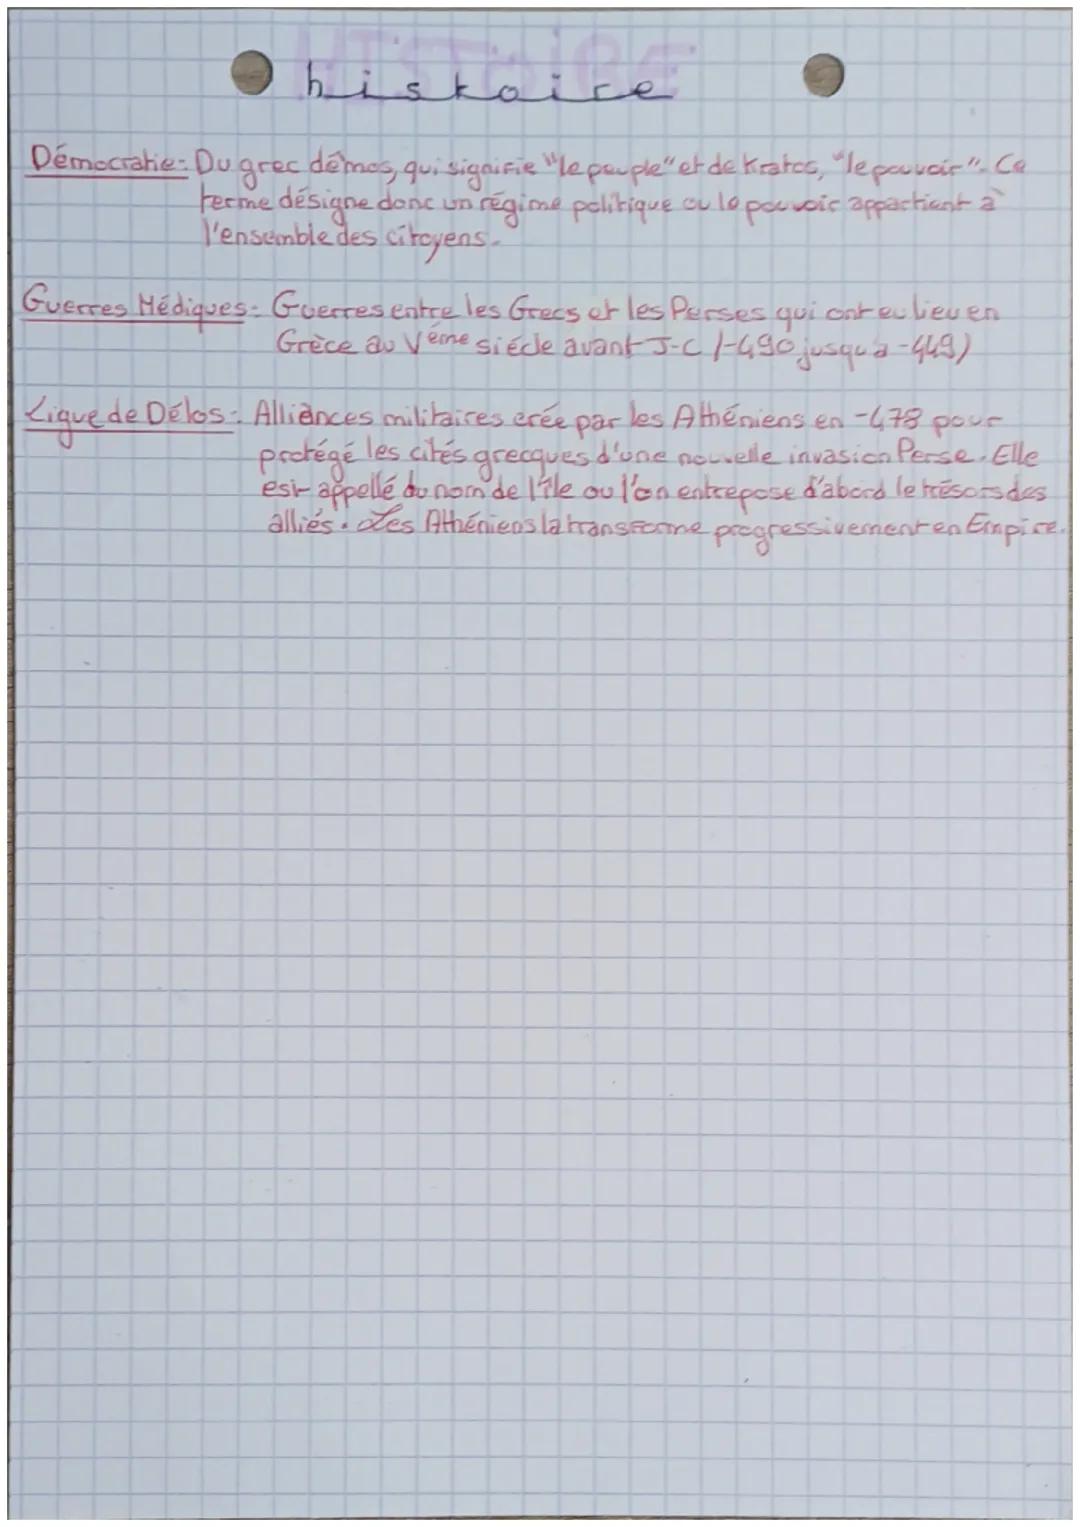 histoire
Démocratie: Du grec dêmos, qui signifie "le peuple" et de Kratos, "le pouvoir". Ce
terme désigne donc un régime politique ou le pouvoir appartient à
l'ensemble des citoyens.
Guerres Médiques: Guerres entre les Grecs et les Perses qui ont eu lieu en
Grèce au Vème siécle avant J-C (-490 jusqu'a -449)
Ligue de Délos: Alliances militaires crée par les Athéniens en -478 pour
protégé les cités grecques d'une nouvelle invasion Perse. Elle
est appellé du nom de l'île ou l'on entrepose d'abord le trésors des
alliés. Les Athéniens la transforme progressivement en Empire.